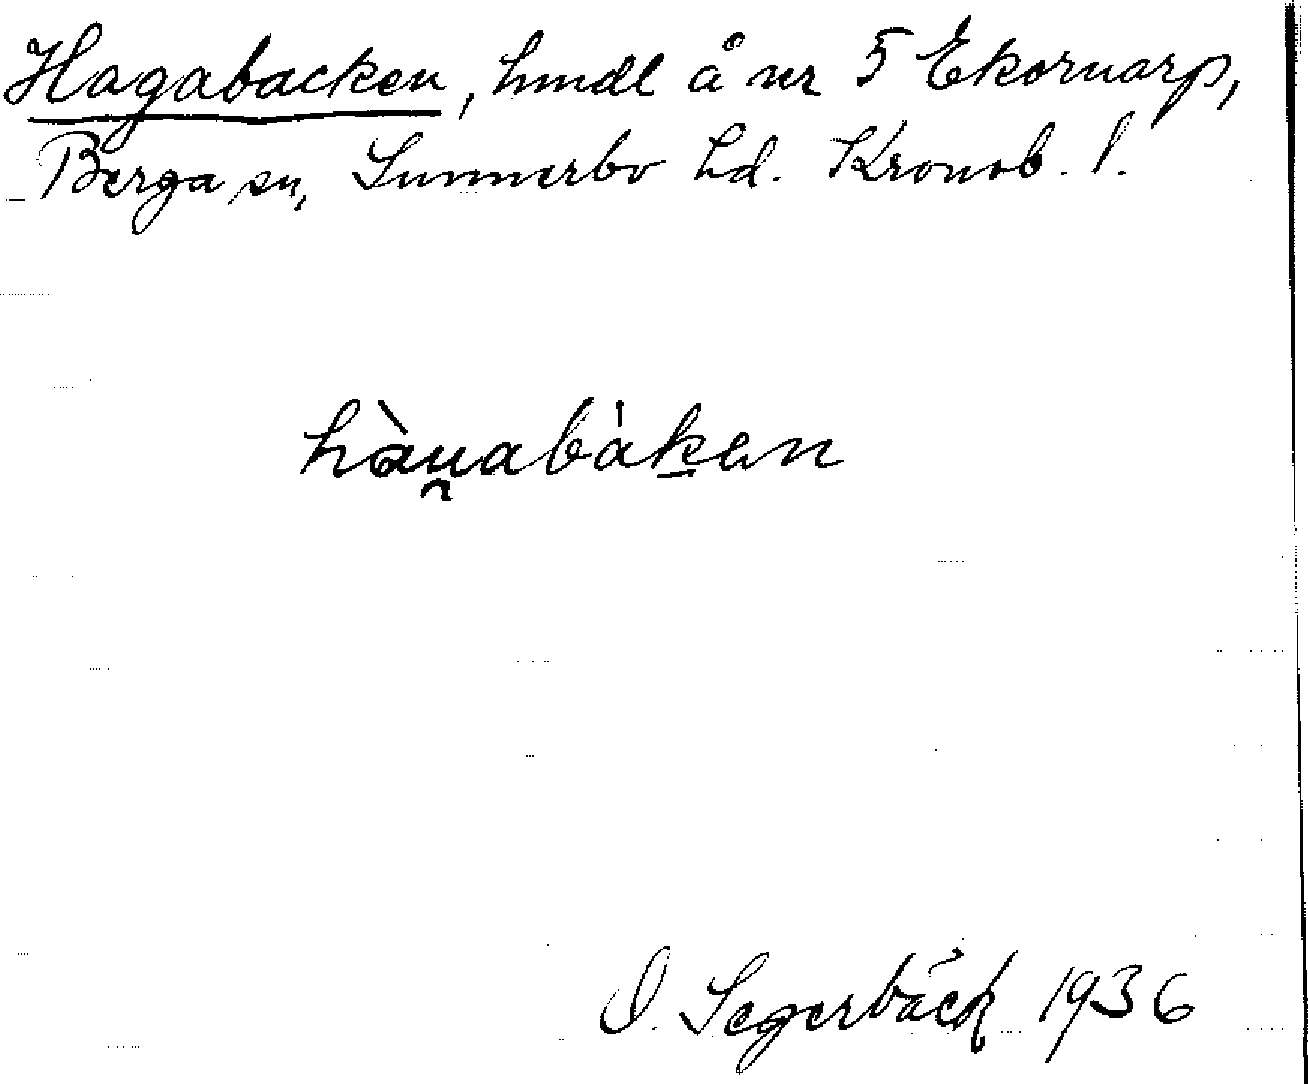 Hagabacken, hmdl å nr 5 Ekornarp,
Berga sn, Sunnerbo hd. Kronob. l.
hàu̯abák̠en
O. Segerbäck 1936